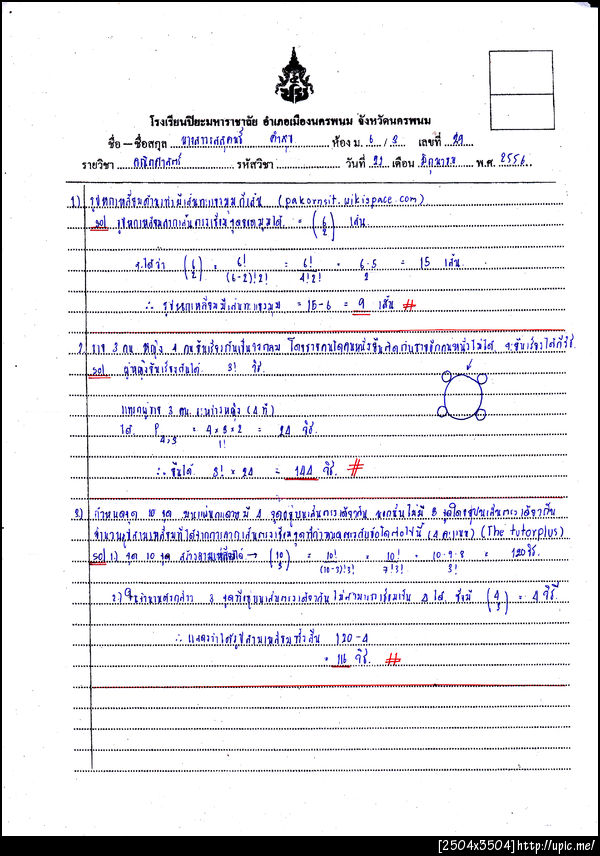 โรงเรียนปิยะมหาราชาลัย อำเภอเมืองนครพนม จังหวัดนครพนม
ชื่อ – ชื่อสกุล นางสาว คำสุข ห้อง ม. 6 / 3 เลขที่ 29
รายวิชา คณิตศาสตร์ รหัสวิชา วันที่ 21 เดือน มิถุนายน พ.ศ. 2556
1.) รูปหกเหลี่ยมด้านเท่ามีเส้นทะแยงมุมกี่เส้น (pakornsit.wikispace.com)
sol รูปหกเหลี่ยมลากเส้นตรงเชื่อมจุดยอดมุมได้ = (6 2) เส้น
จะได้ว่า (6 2) = 6!/(6-2)!2! = 6!/4!2! = 6·5/2 = 15 เส้น
∴ รูปหกเหลี่ยมมีเส้นทะแยงมุม = 15-6 = 9 เส้น #
2. ชาย 3 คน หญิง 4 คน ยืนเรียงกันเป็นวงกลม โดยชายคนใดคนหนึ่งยืนติดกับชายอีกคนหนึ่งไม่ได้ จะยืนเรียงได้กี่วิธี
sol ผู้หญิงยืนเรียงกันได้ 3! วิธี
แทรกผู้ชาย 3 คน ระหว่างหญิง (4 ที่)
ได้ P4,3 = 4×3×2/1! = 24 วิธี
∴ ยืนได้ 3! × 24 = 144 วิธี #
3.) กำหนดจุด 10 จุด บนแผ่นกระดาษมี 4 จุดอยู่บนเส้นตรงเดียวกัน นอกนั้นไม่มี 3 จุดใดอยู่บนเส้นตรงเดียวกัน
จำนวนรูปสามเหลี่ยมที่ได้จากการลากเส้นตรงเชื่อมจุดที่กำหนดตรงกับข้อใดต่อไปนี้ (4 คะแนน) (The tutorplus)
sol 1.) จุด 10 จุด สร้างสามเหลี่ยมได้ → (10 3) = 10!/(10-3)!3! = 10!/7!3! = 10·9·8/3! = 120 วิธี
2.) จำนวนดังกล่าว 3 จุดที่อยู่บนเส้นตรงเดียวกันไม่สามารถเชื่อมเป็น Δ ได้ ซึ่งมี (4 3) = 4 วิธี
∴ แสดงว่าได้รูปสามเหลี่ยมทั้งสิ้น 120-4
= 116 วิธี #
[2504x3504]http://upic.me/